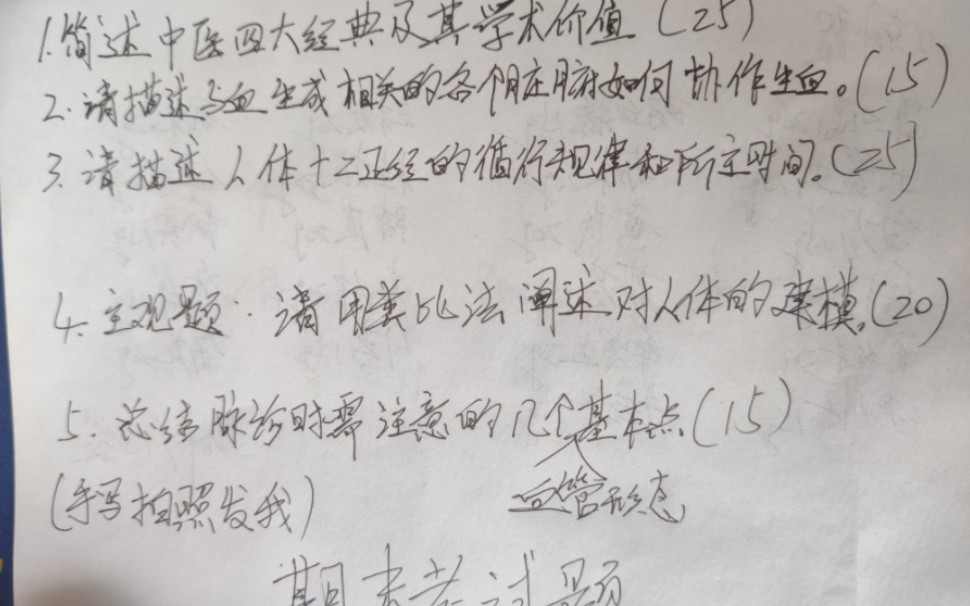 1.简述中医四大经典及其学术价值(25)
2.请描述与血生成相关的各个脏腑如何协作生血。(15)
3.请描述人体十二正经的循行规律和所主时间。(25)
4.主观题:请用类比法阐述对人体的建模,(20)
5.总结脉诊时需注意的几个基本点(15)
血管形态
(手写拍照发我)
期末考试题